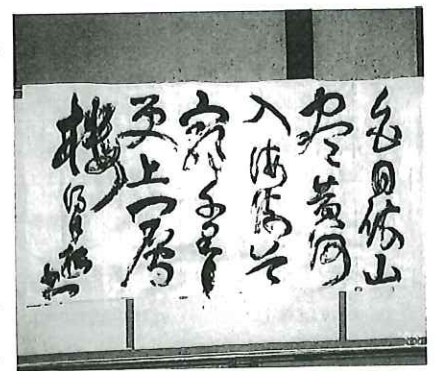 白日依山
盡黄河
入海流欲
窮千里目
更上一層
樓